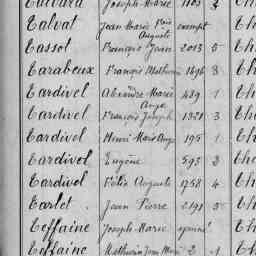 Joseph Marie 1103 2
Calvat Jean Marie exempt
Auguste
Cassol François Jean 2013 5 Ch
Carabeux François Mathurin 1696 3 Ch
Cardivel Alexandre Marie 489 1 Ch
Ange
Cardivel François Joseph 1321 3 Ch
Cardivel Henri Marie Ange 195 1 Ch
Cardivel Eugène 595 2 Ch
Cardivel Félix Auguste 1758 4 Ch
Carlet Jean Pierre 2191 5 Ch
Ceffaine Joseph Marie Ch
Ceffaine Mathurin Jean Marie 2 1 Ch